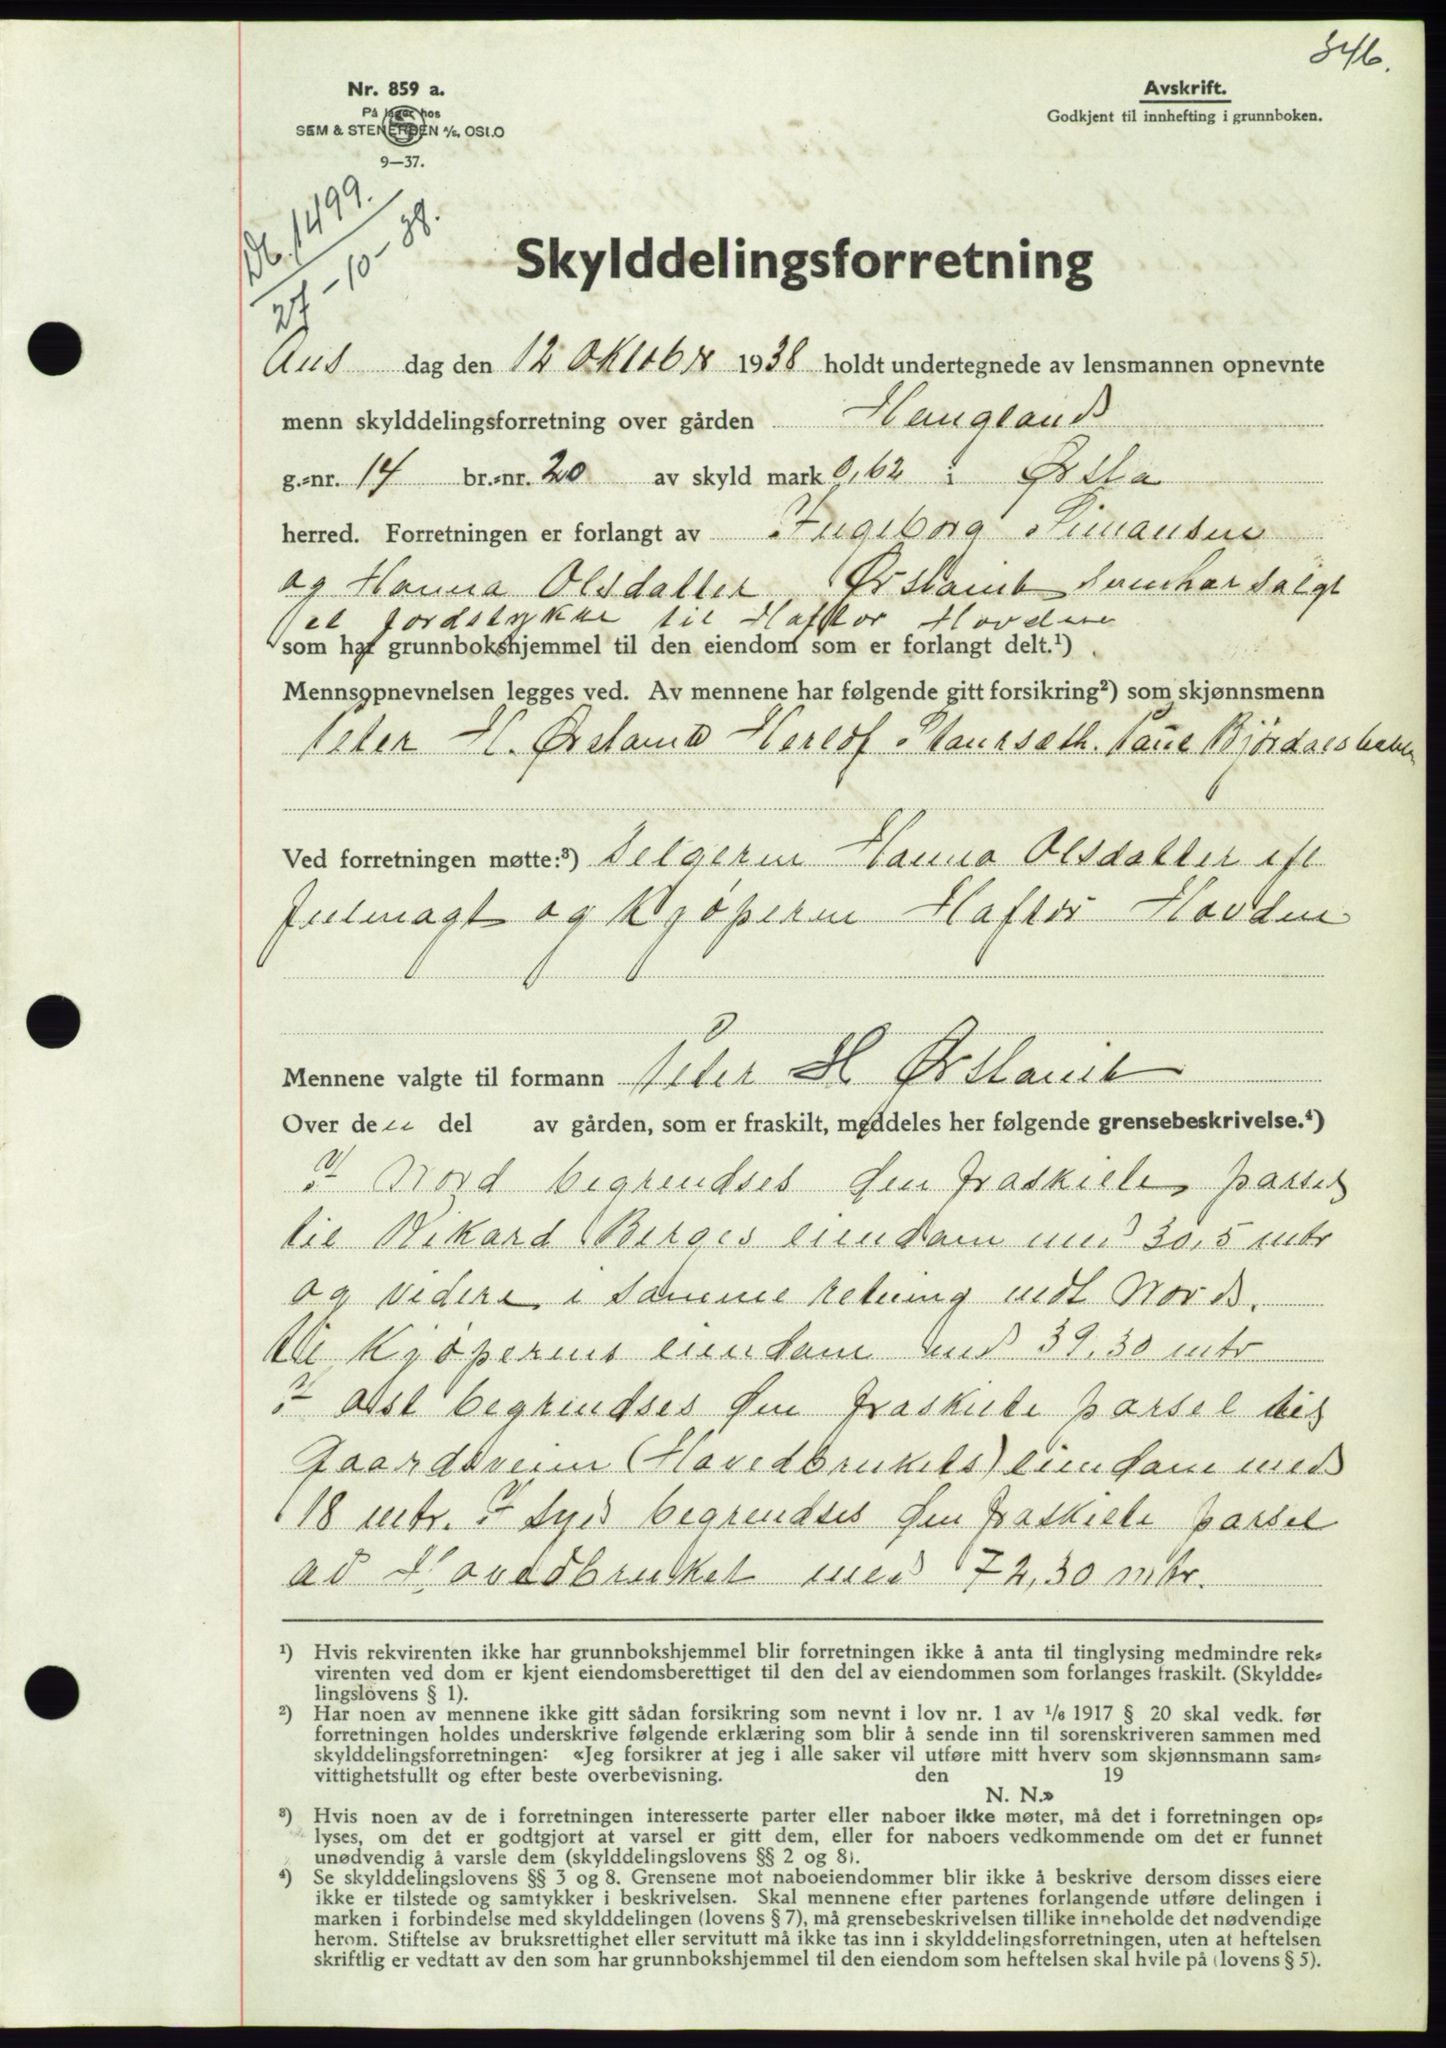 346.
Nr. 859 a.
På lager hos
SEM & STENERSEN A/S, OSLO
9—37.
Avskrift.
Godkjent til innhefting i grunnboken.
Db. 1499.
27-10-38.
Skylddelingsforretning
Ons dag den 12 Oktobr 1938 holdt undertegnede av lensmannen opnevnte
menn skylddelingsforretning over gården Haugland
g.-nr. 14 br.-nr. 20 av skyld mark 0,62 i Ørsta
herred. Forretningen er forlangt av Ingeborg Simansen
og Hanna Olsdatter Ørstavik som har salgt
et jordstykke til Haftor Hovden
som har grunnbokshjemmel til den eiendom som er forlangt delt.¹)
Mennsopnevnelsen legges ved. Av mennene har følgende gitt forsikring²) som skjønnsmenn
Peter H. Ørstavik Herlof Maurseth. Paul Bjørdalsbakke
Ved forretningen møtte:³) Selgeren Hanna Olsdatter efl
fulmagt og Kjøperen Haftor Hovden
Mennene valgte til formann Peter H Ørstavik
Over den del av gården, som er fraskilt, meddeles her følgende grensebeskrivelse.⁴)
I Nord begrendses den fraskilte parsel
til Rikard Berges eiendom med 30,5 mtr
og videre i samme retning mot Nord.
til Kjøperens eiendom med 39.30 mtr
I ost begrendses den fraskilte parsel til
Gaardsveien (Hovedbrukets) eiendom med
18 mtr. I Syd begrendses den fraskilte parsel
ad Hovedbruket med 72,30 mtr.
¹) Hvis rekvirenten ikke har grunnbokshjemmel blir forretningen ikke å anta til tinglysing medmindre rek-
virenten ved dom er kjent eiendomsberettiget til den del av eiendommen som forlanges fraskilt. (Skyldde-
lingslovens § 1).
²) Har noen av mennene ikke gitt sådan forsikring som nevnt i lov nr. 1 av 1/6 1917 § 20 skal vedk. før
forretningen holdes underskrive følgende erklæring som blir å sende inn til sorenskriveren sammen med
skylddelingsforretningen: «Jeg forsikrer at jeg i alle saker vil utføre mitt hverv som skjønnsmann sam-
vittighetsfullt og efter beste overbevisning. den 19
N. N.»
³) Hvis noen av de i forretningen interesserte parter eller naboer ikke møter, må det i forretningen op-
lyses, om det er godtgjort at varsel er gitt dem, eller for naboers vedkommende om det er funnet
unødvendig å varsle dem (skylddelingslovens §§ 2 og 8).
⁴) Se skylddelingslovens §§ 3 og 8. Grensene mot naboeiendommer blir ikke å beskrive dersom disses eiere
ikke er tilstede og samtykker i beskrivelsen. Skal mennene efter partenes forlangende utføre delingen i
marken i forbindelse med skylddelingen (lovens § 7), må grensebeskrivelsen tillike inneholde det nødvendige
herom. Stiftelse av bruksrettighet eller servitutt må ikke tas inn i skylddelingsforretningen, uten at heftelsen
skriftlig er vedtatt av den som har grunnbokshjemmel til den eiendom som heftelsen skal hvile på (lovens § 5).